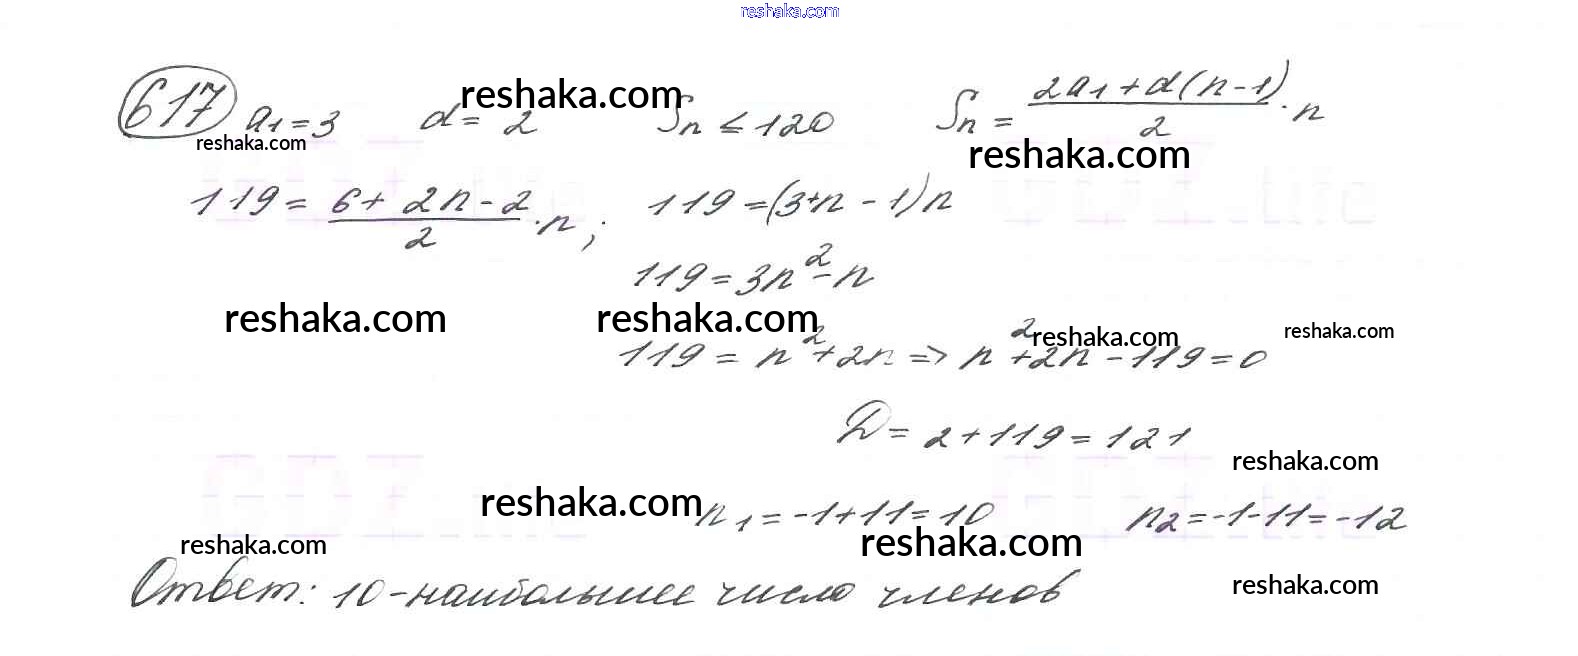 reshaka.com
617 a₁=3 d= 2 Sₙ ≤ 120 Sₙ = (2a₁+d(n-1))/2 · n
reshaka.com
reshaka.com
reshaka.com
119 = (6+ 2n-2)/2 · n ; 119 =(3+n - 1)n
119 = 3n² - n
reshaka.com reshaka.com reshaka.com reshaka.com
119 = n²+2n => n²+2n - 119 = 0
D = 2+119 = 121
reshaka.com
reshaka.com n₁ = -1+11 = 10 n₂ = -1-11 = -12
reshaka.com reshaka.com
Ответ: 10 - наибольшее число членов reshaka.com